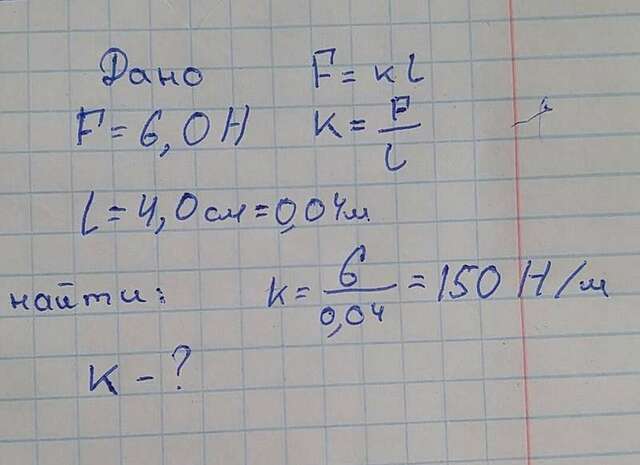 Дано
F = 6,0 Н
l = 4,0 см = 0,04 м
найти:
к - ?
F = к l
к = F / l
к = 6 / 0,04 = 150 Н/м